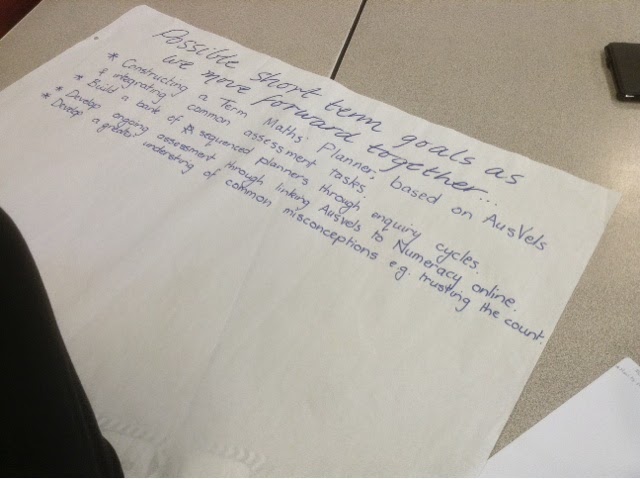 Possible short term goals as
we move forward together...
* Constructing a Term Maths Planner, based on AusVels
& integrating common assessment tasks.
* Build a bank of sequenced planners through enquiry cycles.
* Develop ongoing assessment through linking AusVels to Numeracy online.
* Develop a greater understing of common misconceptions e.g. trusting the count.